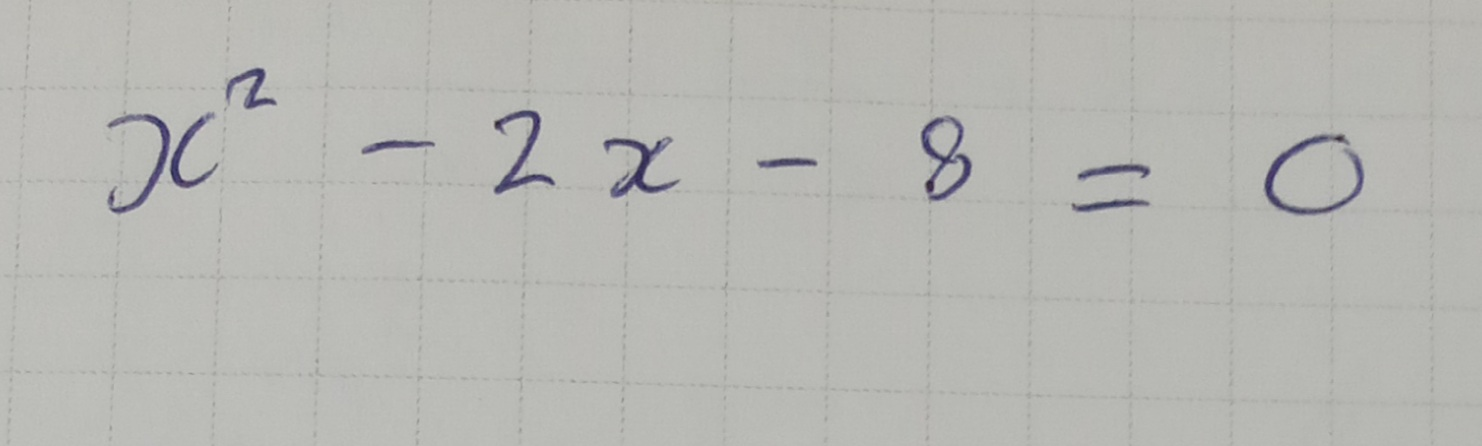 x² - 2x - 8 = 0